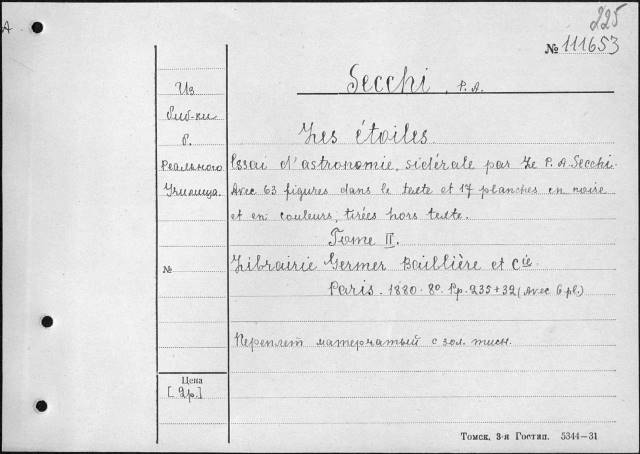 225
№ 111653
А
Secchi, P. A.
Из
биб-ки
Р.
Реального
Училища.
Les étoiles
Essai d'astronomie, sidérale par Le P. A. Secchi.
Avec 63 figures dans le texte et 17 planches en noire
et en couleurs, tirées hors texte.
Tome II.
№
Librairie Germer Baillière et Cie
Paris. 1880. 8º. Pp. 235+32 (Avec 6 pl.)
Переплет матерчатый с зол. тисн.
Цена
[2р.]
Томск, 3-я Гостип. 5344—31